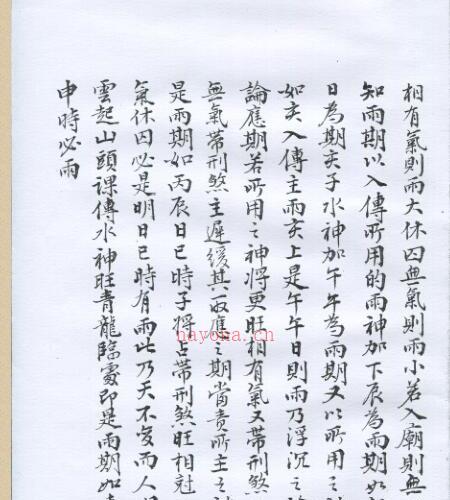 相有氣則雨大休囚無氣則雨小若入廟則無
知雨期以入傳所用的雨神加下辰為雨期如
日為期亥子水神加午午為雨期又以所用之
如亥入傳主雨亥上是午午日則雨乃浮沉之
論應期若所用之神將更旺相有氣又帶刑煞
無氣帶刑煞主遲緩其取應之期當責所主之神
是雨期如丙辰日巳時子將占帶刑煞旺相尅
氣休囚必是明日巳時有雨此乃天不变而人
雲起山頭課傳水神旺青龍臨處即是雨期如
申時必雨
nayona.cn